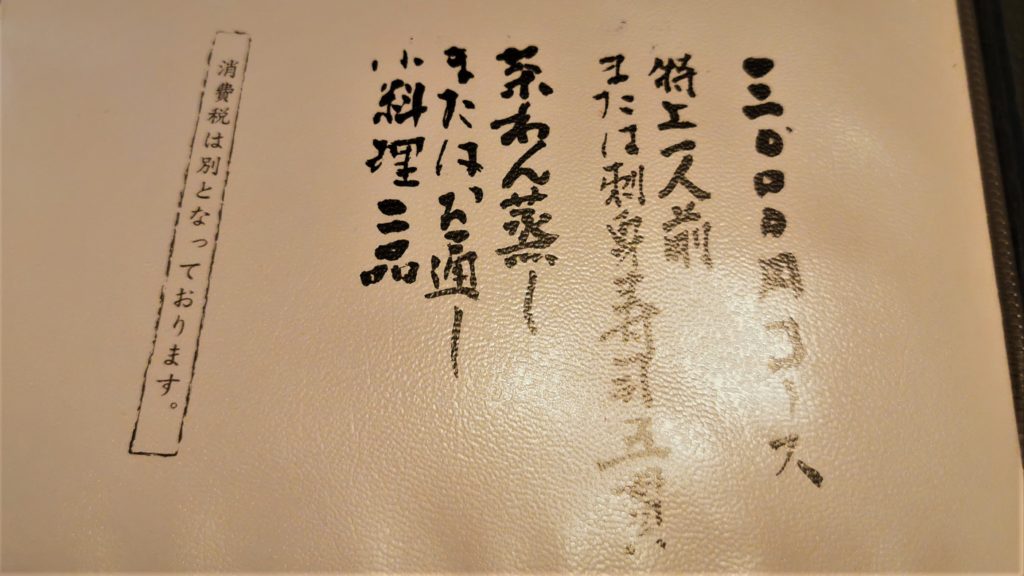 三〇〇〇円コース
特上一人前
または刺身寿司五
茶わん蒸し
またはお通し
小料理二品
消費税は別となっております。